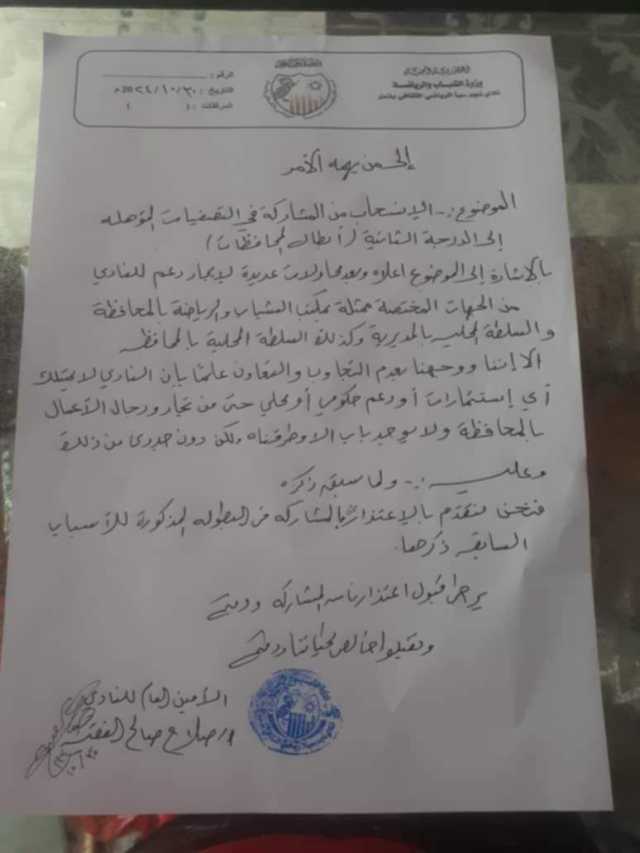 الجمهورية اليمنية
وزارة الشباب والرياضة
نادي الرياضي الثقافي
الرقم :
التاريخ : ٢٠٢٤/١٠/٣٠م
المرفقات : ( )
إلى من يهمه الأمر
الموضوع :- الإنسحاب من المشاركة في التصفيات المؤهله
إلى الدرجة الثانية (أبطال المحافظات)
بالاشارة إلى الموضوع اعلاه وبعد محاولات عديدة لإيجاد دعم للنادي
من الجهات المختصة ممثلة بمكتب الشباب والرياضة بالمحافظة
والسلطة المحلية بالمديرية وكذلك السلطة المحلية بالمحافظة
الا اننا ووجهنا بعدم التجاوب والتعاون علماً بان النادي لا يمتلك
أي إستثمارات أو دعم حكومي أو محلي حتى من تجار ورجال الأعمال
بالمحافظة ولا يوجد باب الا وطرقناه ولكن دون جدوى من ذلك
وعليه :- ولما سبق ذكره
فنحن نتقدم بالإعتذار بالمشاركه في البطوله المذكورة للأسباب
السابقه ذكرها.
يرجى قبول اعتذارنا من المشاركه ودمتم
وتقبلوا خالص تحياتنا ودمتم
الأمين العام للنادي
صلاح صالح